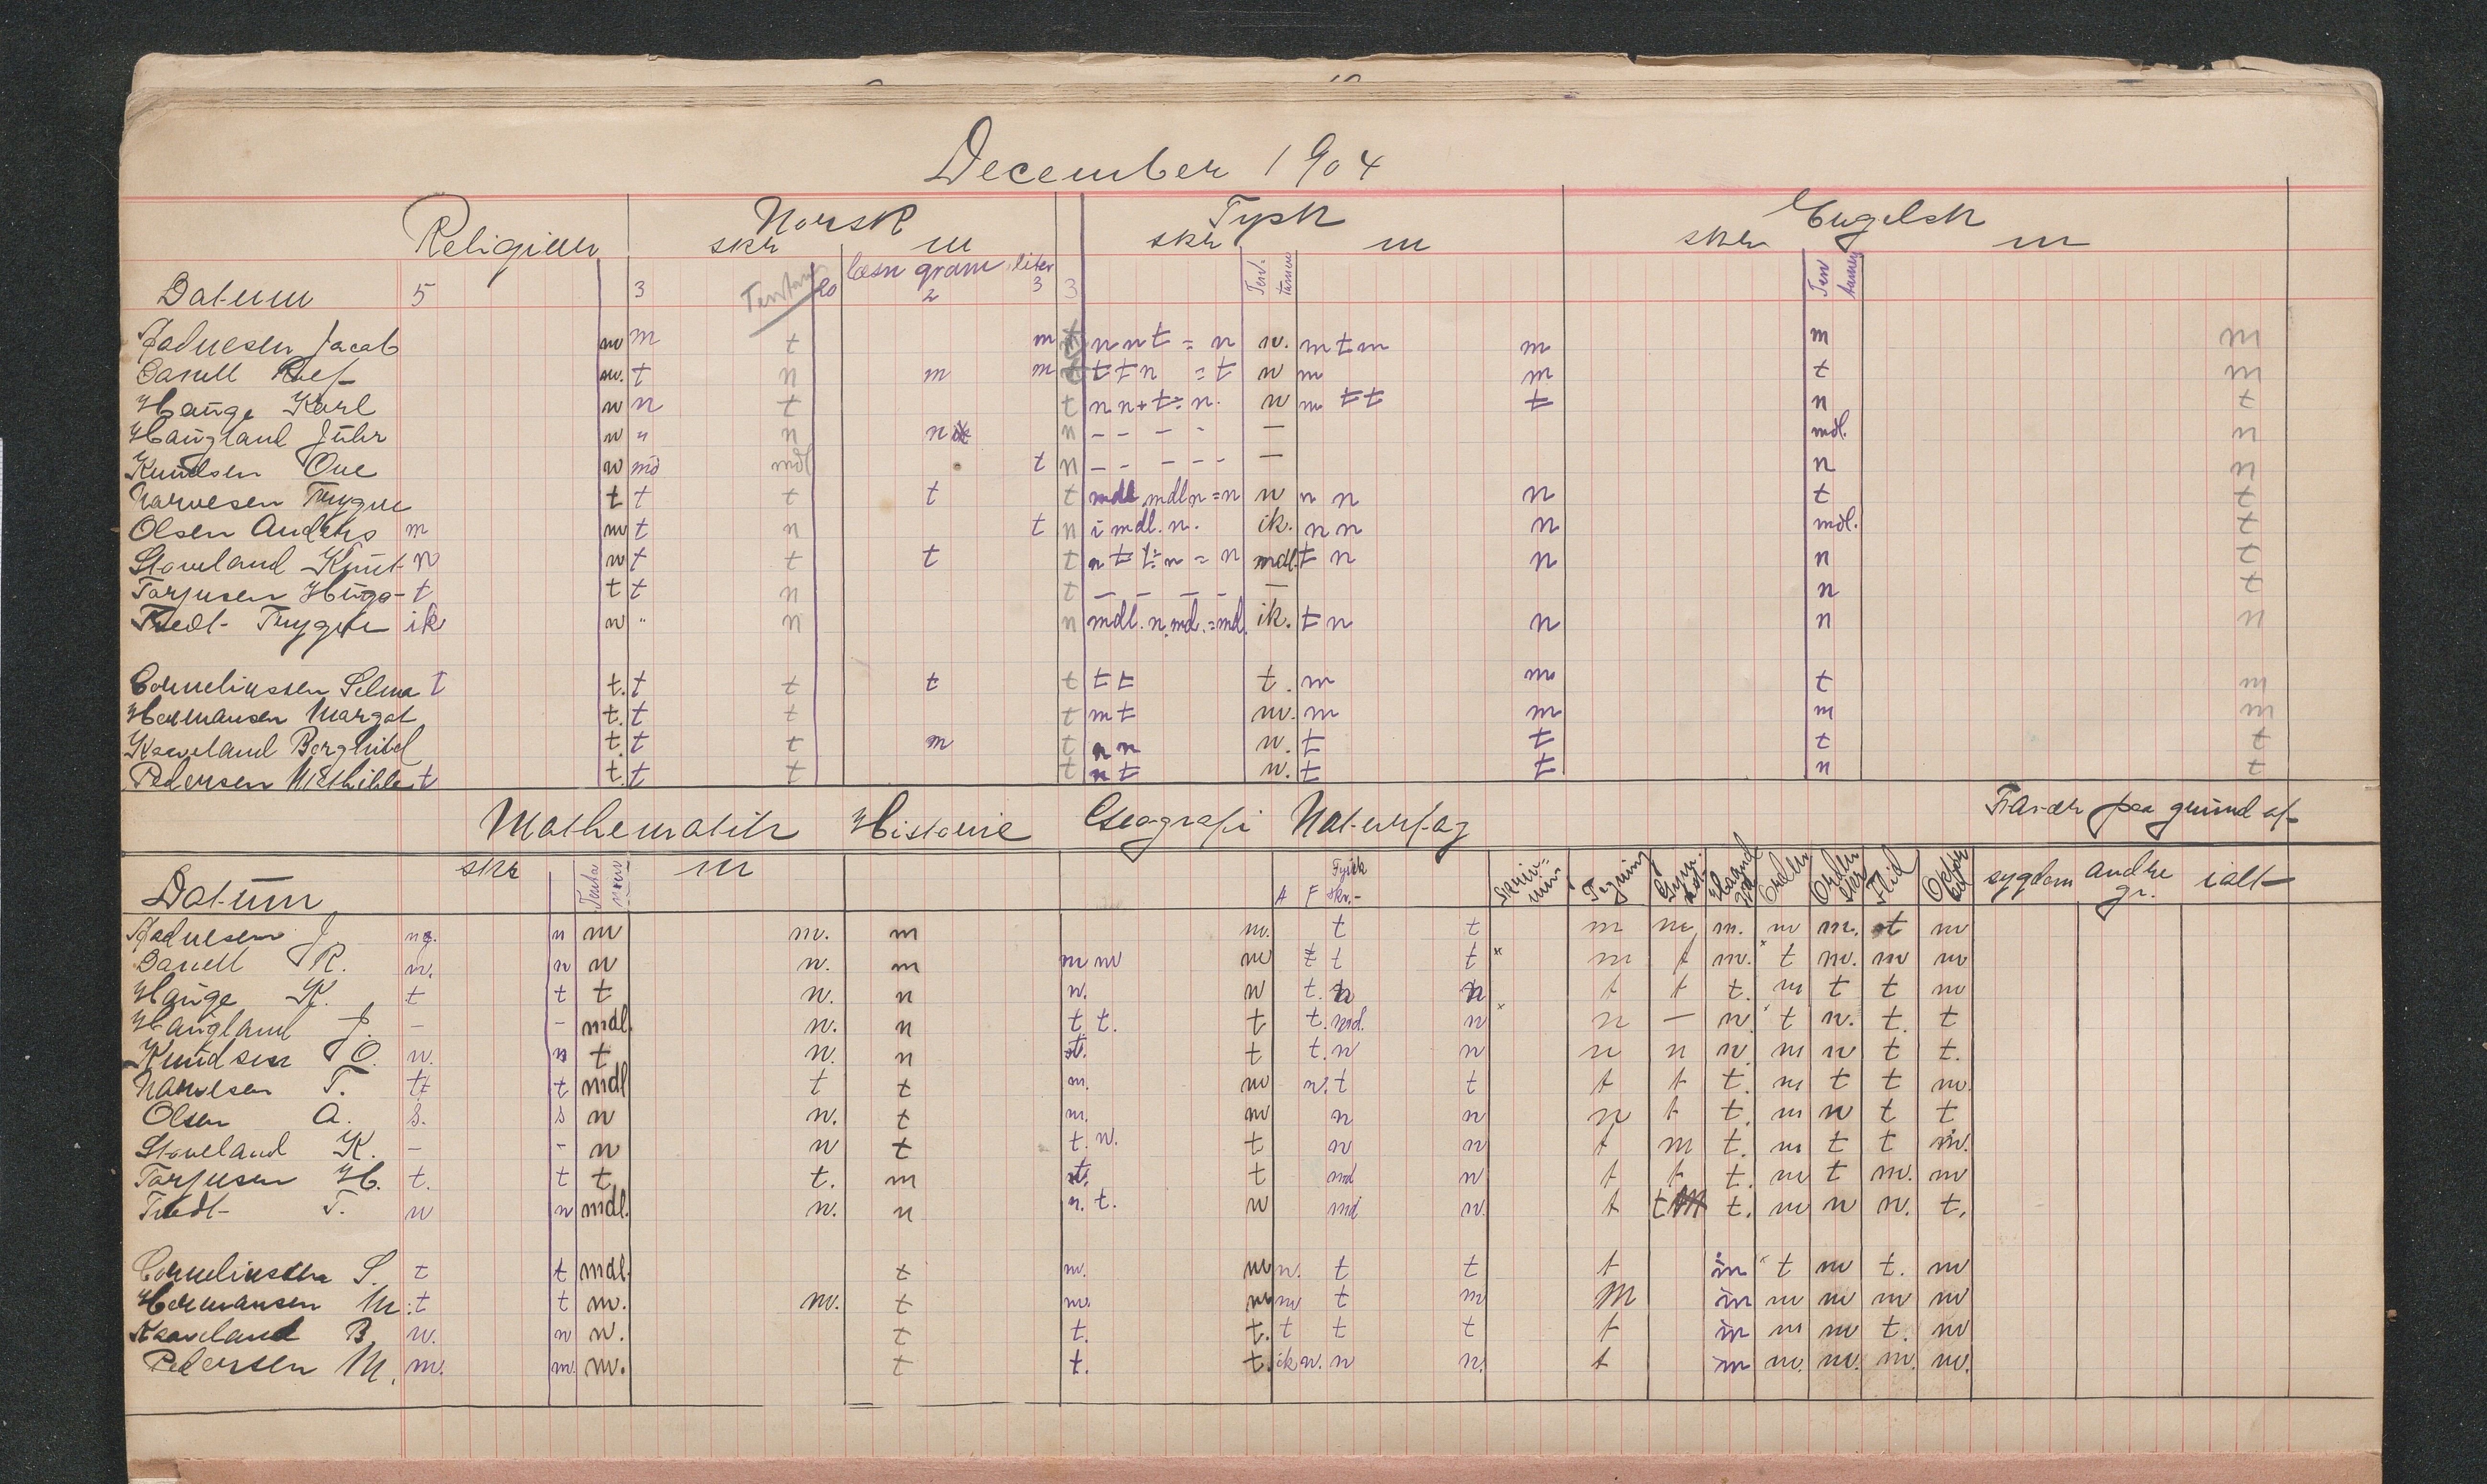 December 1904
Religion Norsk Tysk Engelsk
skr m skr m skr m
Datum 5 3 Tentam 20 læsn gram liter 2 3 3 Ten- tamen Ten tamen
Aadnesen Jacob m m t m t n n t = n n. m t m m m m
Danell Rolf m. t n m m t t t n = t n m m t m
Hauge Karl n n t t n n + t = n. n m t t t n t
Haugland Juhr n " n n n – – – – — mdl. n
Knudsen Ove n md mdl t n – – – – – — n n
Narvesen Trygve t t t t t mdl mdl n = n n n n n t t
Olsen Anders m m t n t n i mdl. n. ik. n n n mdl. t
Stoveland Knut n n t t t t n t t = n = n mdl. t n n n t
Torjusen Hugo t t t n t – – – – — n t
Tvedt Trygve ik n " n n mdl. n. md. = md. ik. t n n n n
Corneliussen Selma t t. t t t t t t t. m m t m
Hermansen Margot t. t t t m t m. m m m m
Kaaveland Borghild t. t t m t n n n. t t t t
Pedersen Mathilde t t. t t t n t n. t t n t
Mathematik Historie Geografi Naturfag Fravær paa grund af
skr Tentamen m A F Fysik skr. Skrivning Tegning Gymnast. Haand gr. Orden Orden skr. Flid Opførsel sygdom andre gr. ialt
Datum
Aadnesen J n m m. m m. t t m m. m. m m. t m
Danell R. n. n n n. m m m m t t t m t m. t m. m m
Hauge K. t t t n. n n. n t. n n t t t. m t t m
Haugland J. – – mdl. n. n t t. t t. md. n n — n. t n. t. t
Knudsen O. n. n t n. n t. t t. n n n n n m n t t.
Narvesen T. t t mdl t t m. m n. t t t t t. m t t m.
Olsen A. s. s n n. t m. m n n n t t. m n t t
Stoveland K. – – n n t t. n. t n n t m t. m t t m.
Torjusen H. t. t t t. m t. t md n t t t. m t m. m
Tvedt T. n n mdl. n. n n. t. n md n. t t t. m n n. t.
Corneliussen S. t t mdl. t m. m n. t t t m t m t. m
Hermansen M. t t m. m. t m. m m t m m m m m m m
Kaaveland B. n. n n. t t. t. t t t t m m m t. m
Pedersen M. m. m. m. t t. t. ik n. n n. t m m. m. m. m.